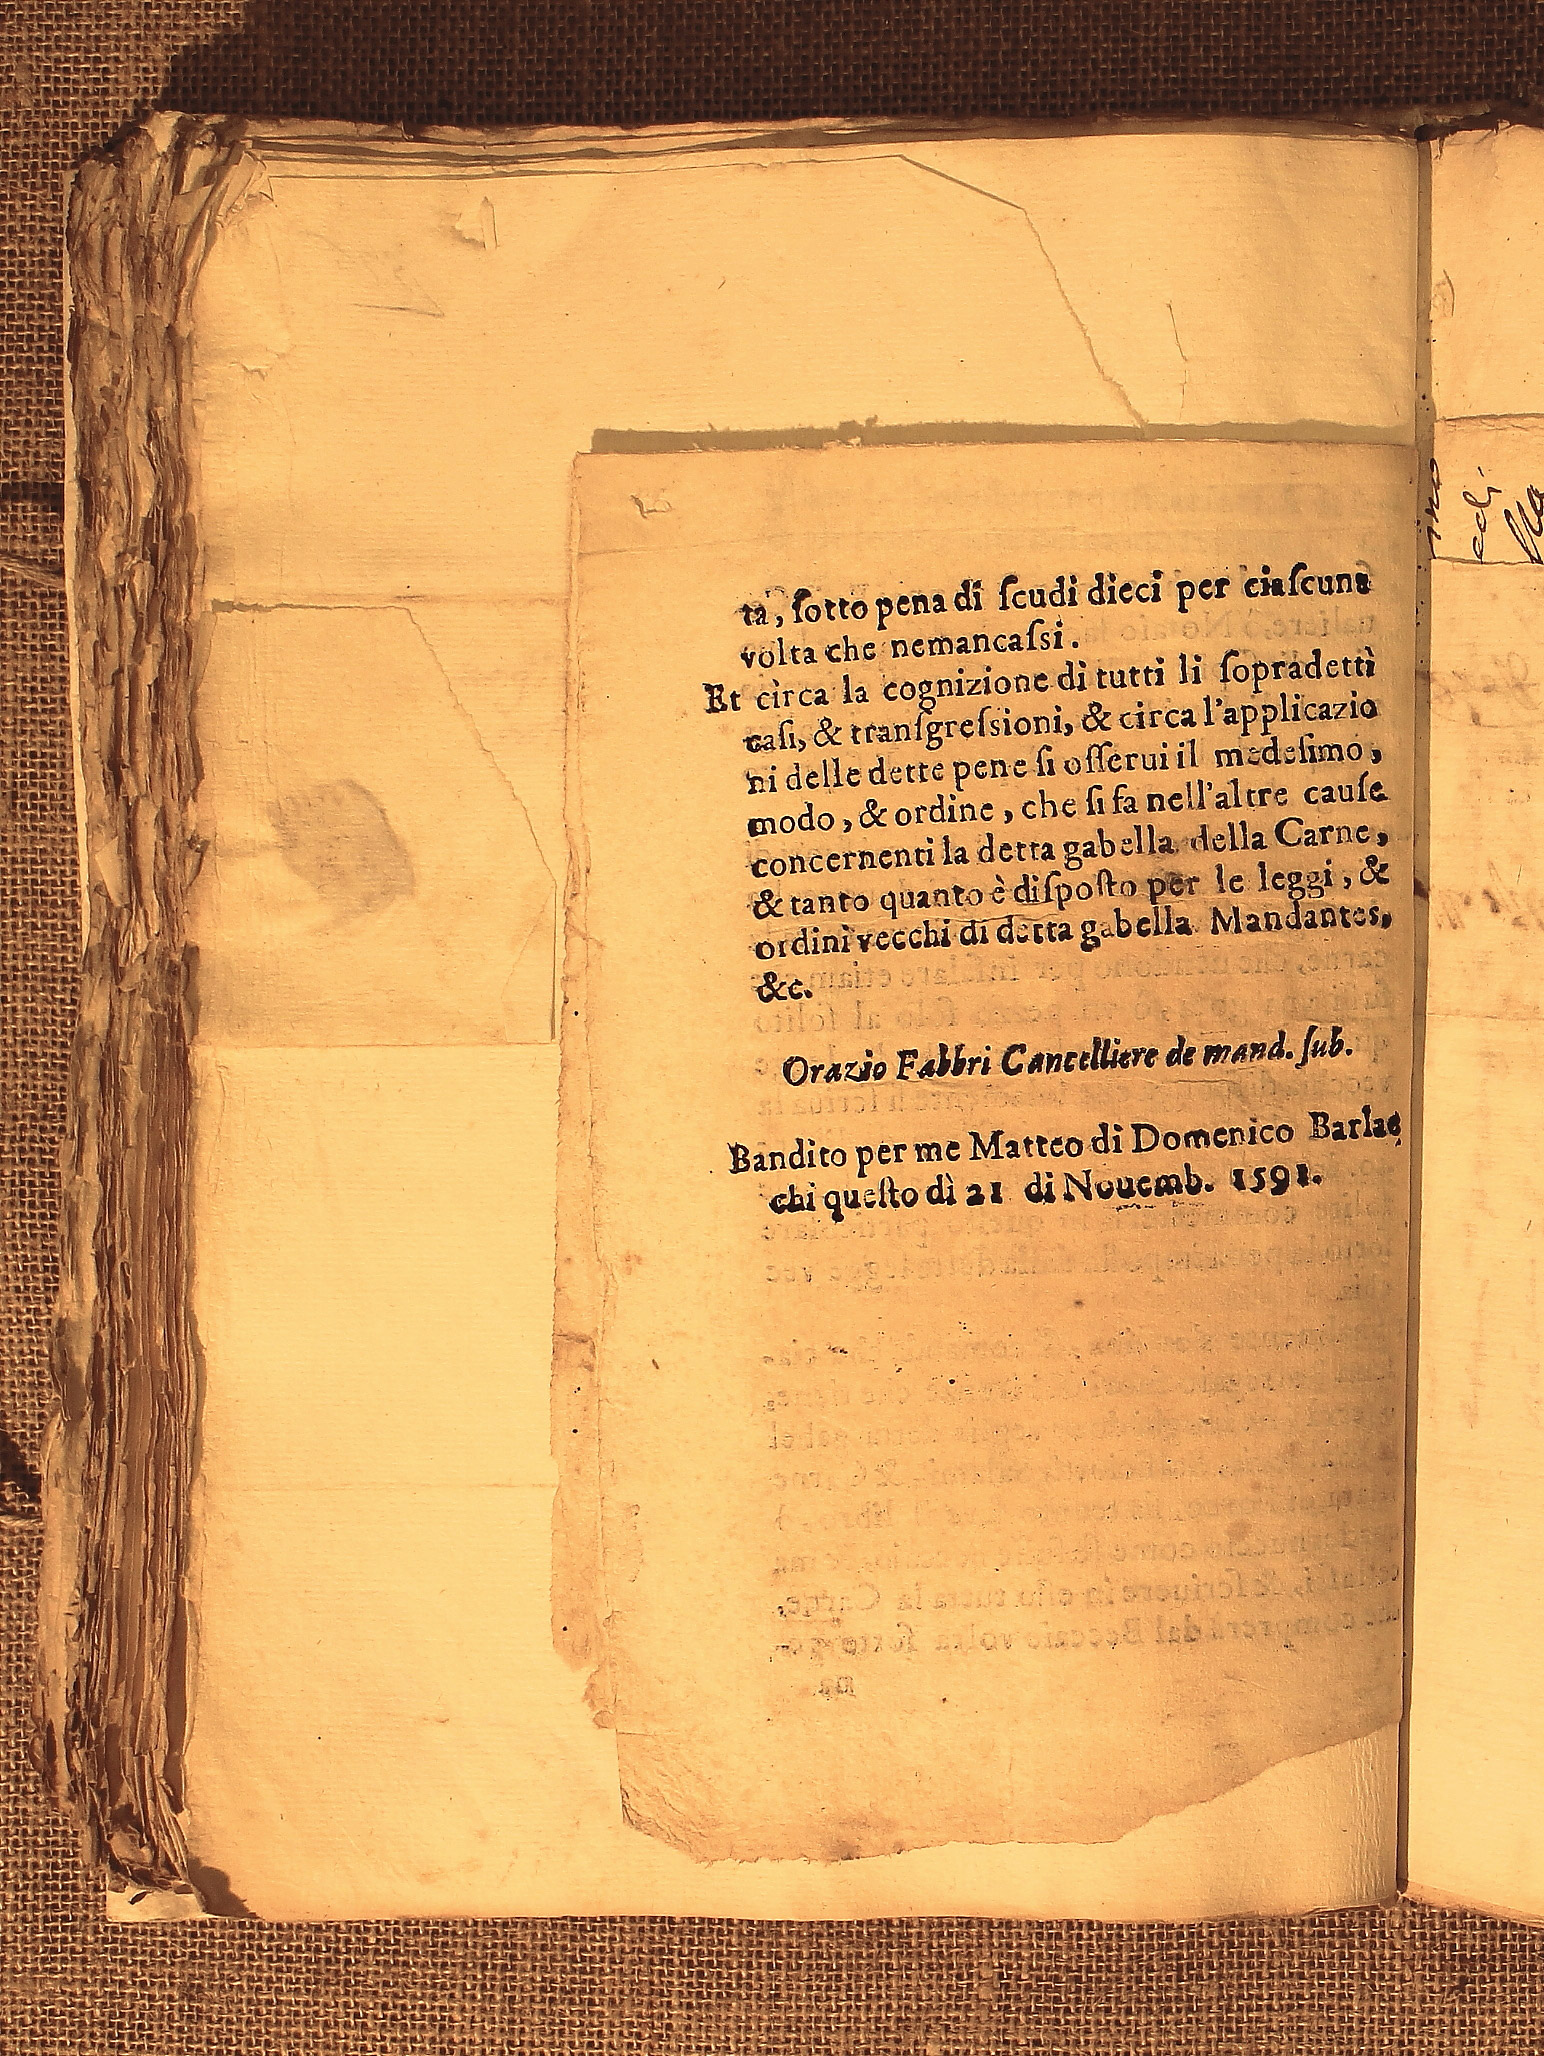 ta, ſotto pena di ſcudi dieci per ciaſcuna
volta che nemancaſsi.
Et circa la cognizione di tutti li ſopradetti
caſi, & tranſgreſsioni, & circa l'applicazio
ni delle dette pene ſi oſſerui il medeſimo,
modo, & ordine, che ſi fa nell'altre cauſe
concernenti la detta gabella della Carne,
& tanto quanto è diſpoſto per le leggi, &
ordini vecchi di detta gabella Mandantes,
&c.
Orazio Fabbri Cancelliere de mand. ſub.
Bandito per me Matteo di Domenico Barlac
chi queſto dì 21 di Nouemb. 1591.